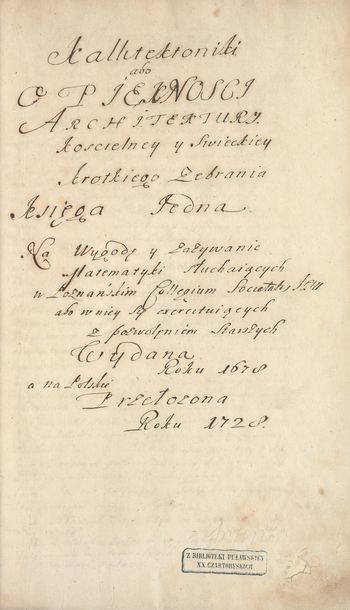 Kallitektoniki
abo
O PIĘKNOSCI
ARCHITEKTURY.
Koscielney y Swieckiey
krotkiego Zebrania
Księga Jedna.
Na Wygodę y zażywanie
Matematyki słuchaiących
w Poznańskim Collegium Societatis
abo w niey się exercituiących
z pozwolęniem Starszych
Wydana
Roku 1678
a na Polskie
Przełozona
Roku 1728.
Z BIBLIOTEKI PUŁAWSKIEY
XX. CZARTORYSKICH